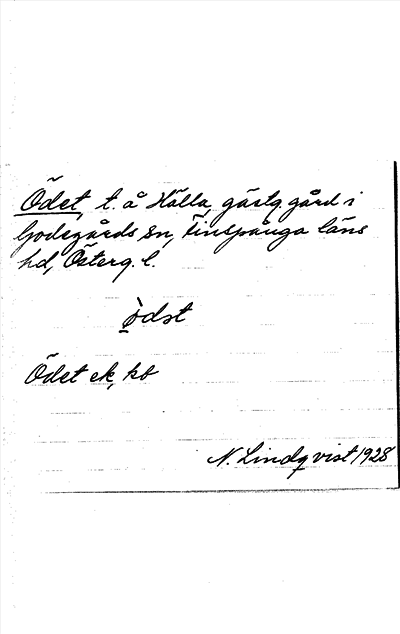 Ödet, t. å Hälla gästg.gård i
Godegårds sn, Finspånga läns
hd, Österg. l.
ödǝt
Ödet ek, kb
N. Lindqvist 1928